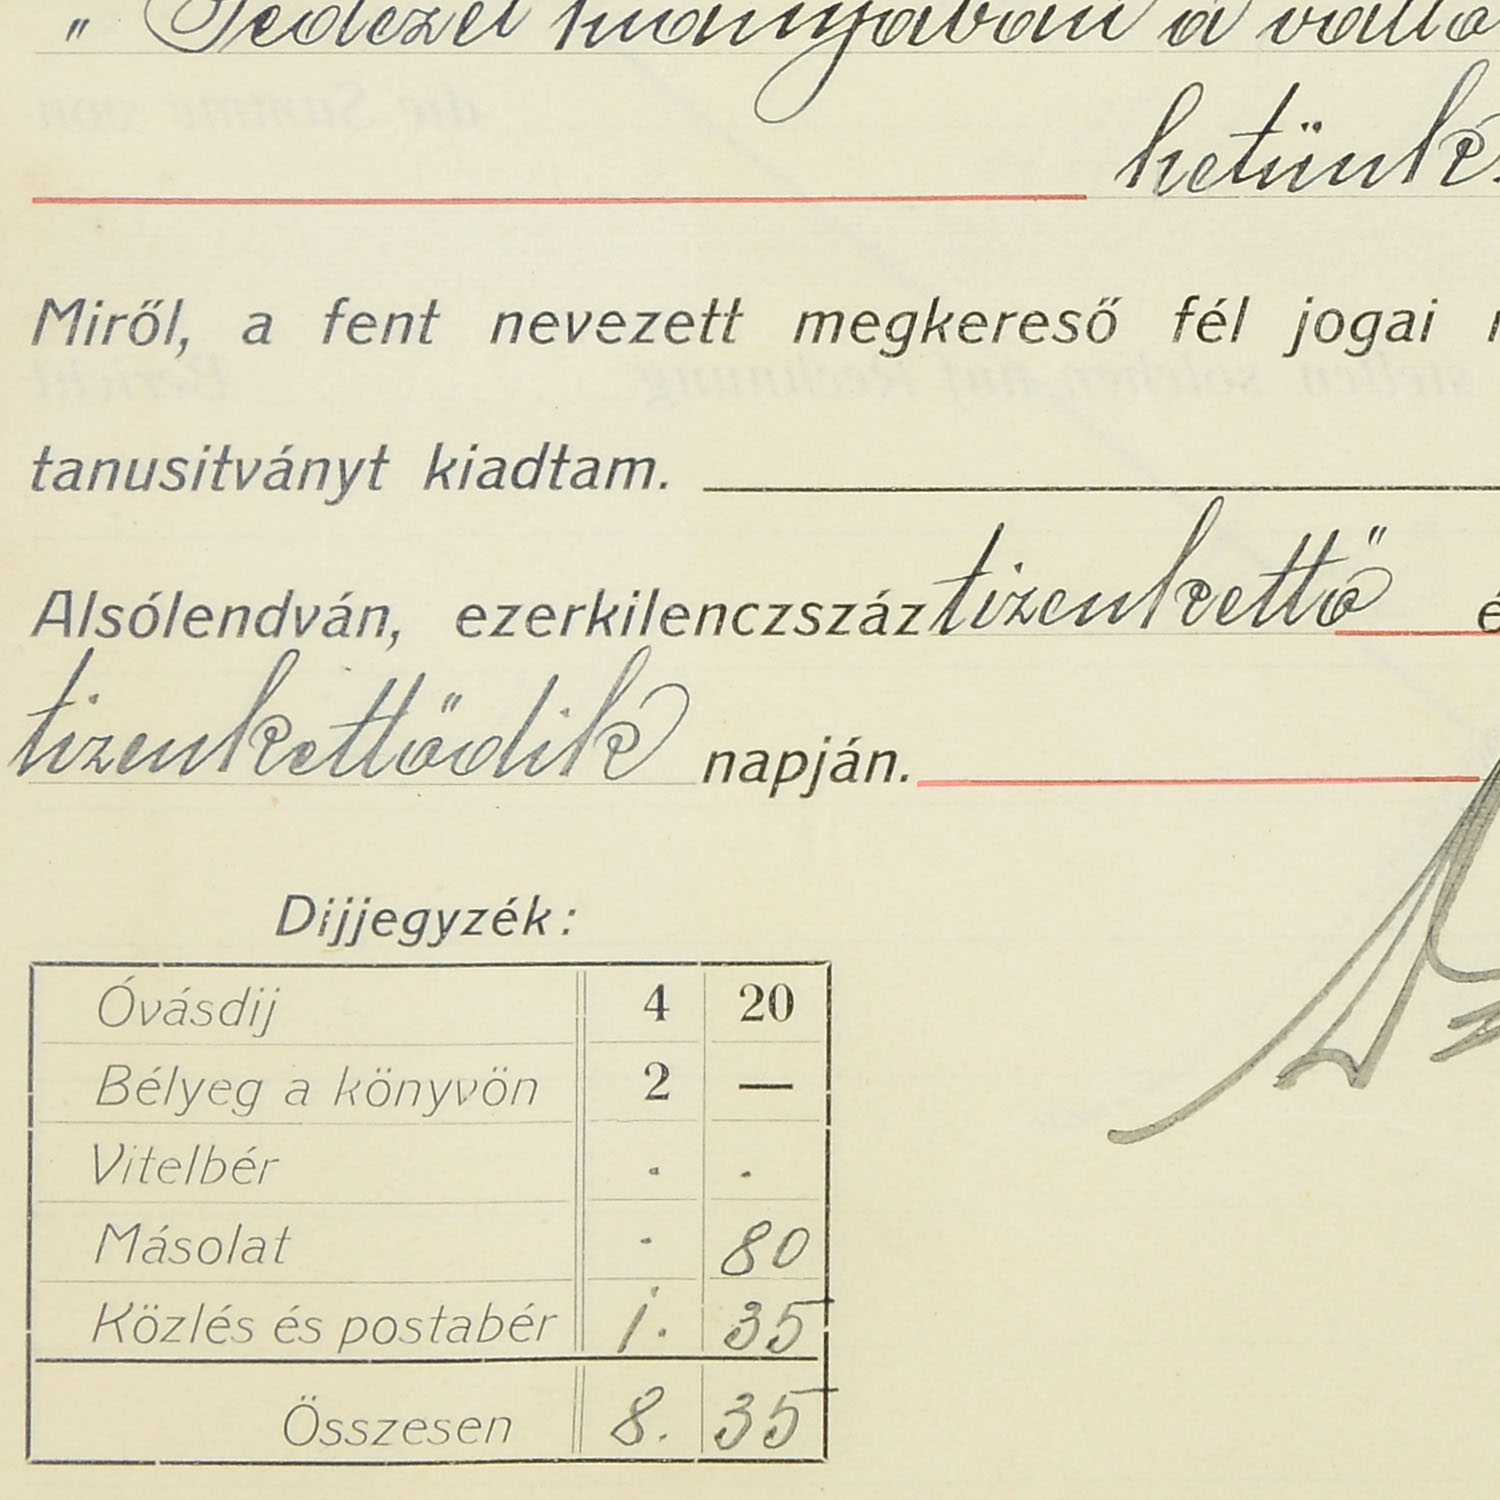 „ Fedezet hiányában a váltó
hetünk.
Miről, a fent nevezett megkereső fél jogai
tanusitványt kiadtam.
Alsólendván, ezerkilenczszáz tizenkettő é
tizenkettödik napján.
Dijjegyzék:
Óvásdij 4 20
Bélyeg a könyvön 2 —
Vitelbér . .
Másolat . 80
Közlés és postabér 1. 35
Összesen 8. 35